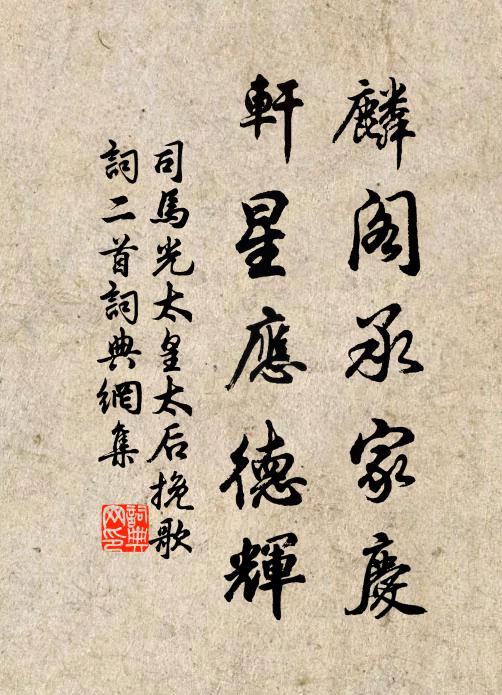 麟阁承家慶
軒星應德輝
司馬光太皇太后挽歌
詞二首詞典網集
詞典网印